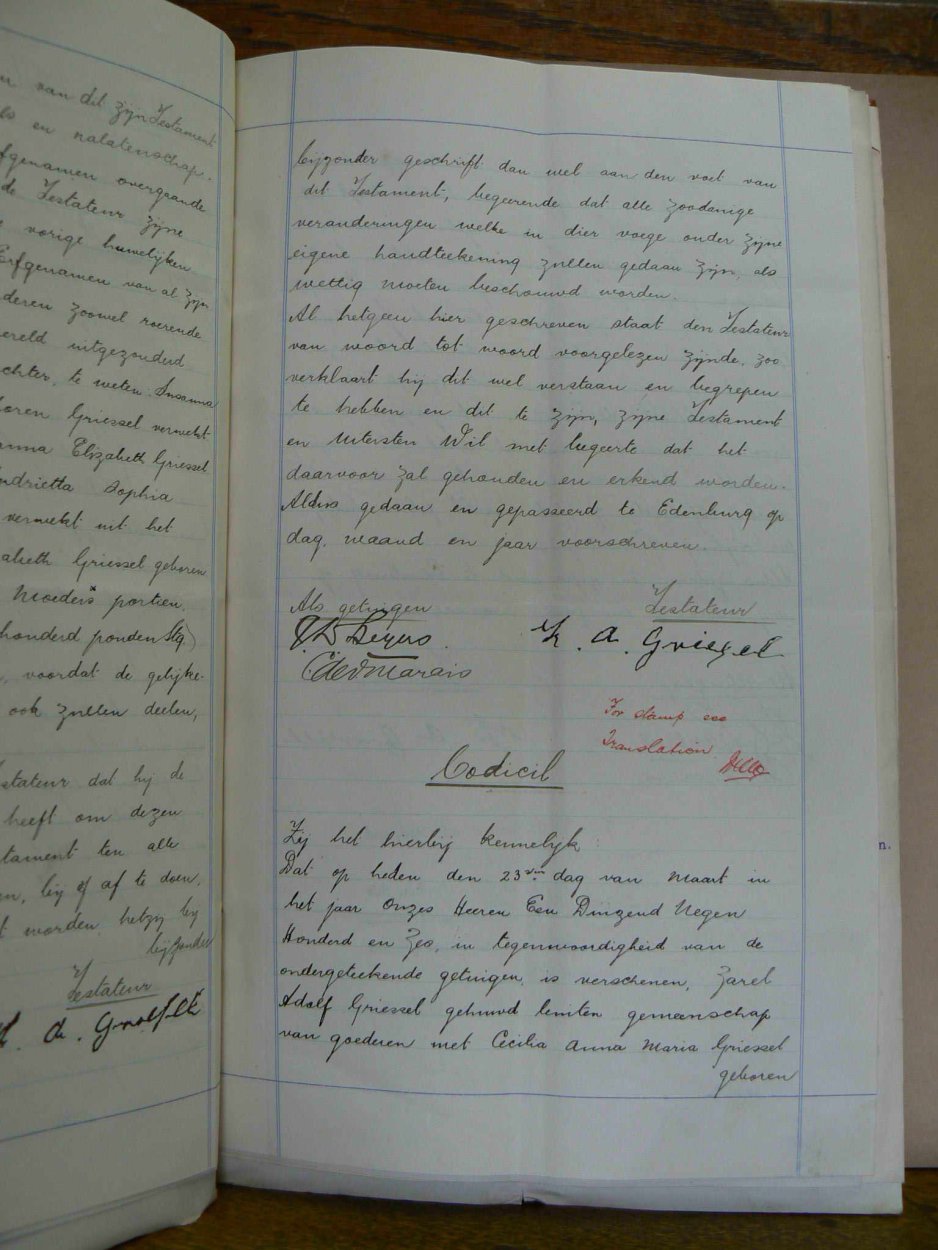 van dit zijn Testament
en nalatenschap.
Erfgenamen overgaande
de Testateur zijne
vorige huwelijken
Erfgenamen van al zijn
deren zoowel roerende
wereld uitgezonderd
dochter, te weten Susanna
geboren Griessel verwekt
Elizabeth Griessel
Hendrietta Sophia
verwekt uit het
Griessel geboren
Moeders portien.
honderd ponden Stg)
voordat de gelijke-
ook zullen deelen,
Testateur dat hij de
heeft om dezen
ten alle
bij of af te doen,
worden, hetzij bij
bijzonder
Testateur
bijzonder geschrift dan wel aan den voet van
dit Testament, begeerende dat alle zoodanige
veranderingen welke in dier voege onder zijne
eigene handteekening zullen gedaan zijn, als
wettig moeten beschouwd worden.
Al hetgeen hier geschreven staat den Testateur
van woord tot woord voorgelezen zijnde, zoo
verklaart hij dit wel verstaan en begrepen
te hebben en dit te zijn, zijne Testament
en Uitersten Wil met begeerte dat het
daarvoor zal gehouden en erkend worden.
Aldus gedaan en gepasseerd te Edenburg op
dag, maand en jaar voorschreven.
Als getuigen Testateur
A. Griezel
For stamp see
Translation
Codicil
Zij het hierbij kennelijk:
Dat op heden den 23sten dag van Maart in
het jaar Onzes Heeren Een Duizend Negen
Honderd en Zes, in tegenwoordigheid van de
ondergeteekende getuigen, is verschenen, Zarel
Adolf Griessel gehuwd buiten gemeenschap
van goederen met Cecilia Anna Maria Griessel
geboren
n.